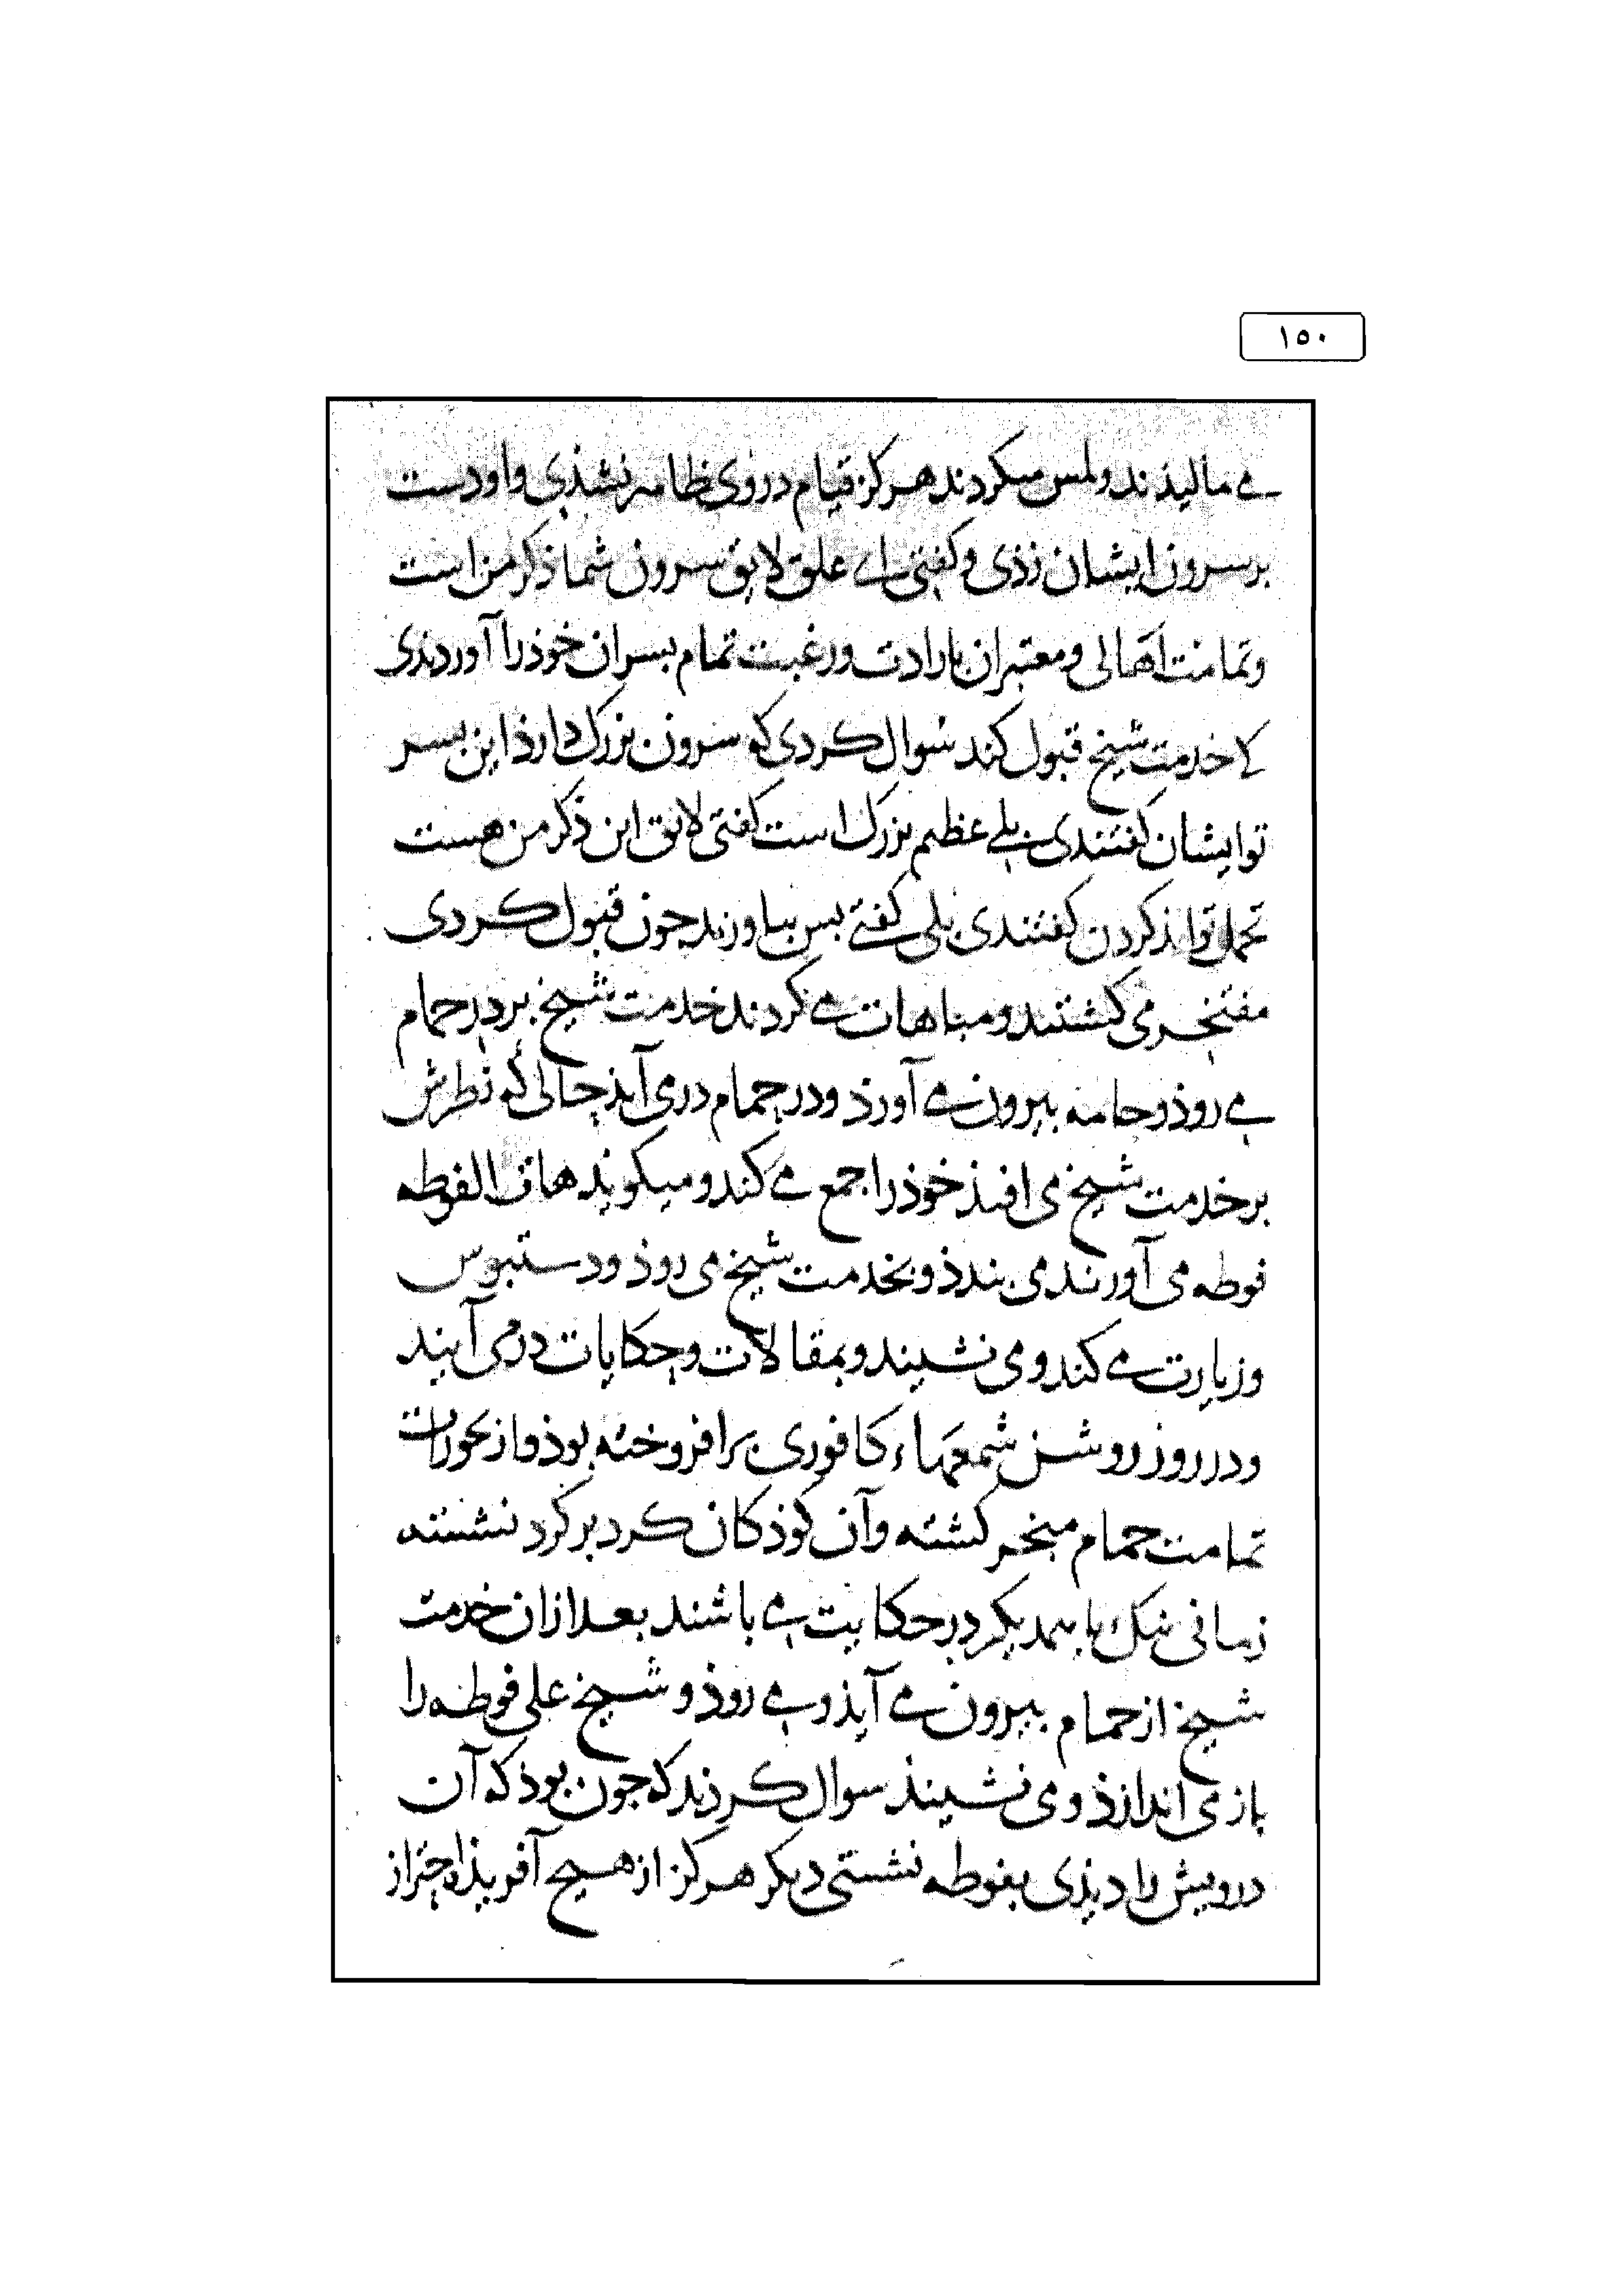 ١٥٠
می مالیذند و لمس میکردند هرکز قیام در وی ظاهر نشذی و او دست
بر سرون ایشان زذی و کفتی ای علق لایق سرون شما ذکر من است
و تمامت اهالی و معتبران بارادت و رغبت تمام بسران خوذ را آوردندی
کی خدمت شیخ قبول کند سوال کردی که سرون بزرک دارذ این بسر
تو ایشان کفتندی بلی عظیم بزرک است کفتی لایق این ذکر من هست
تحمل تواند کردن کفتندی بلی کفتی بس بیاورند جون قبول کردی
مفتخر می کشتند و مباهات می کردند خدمت شیخ بر در حمام
می روذ و جامه بیرون می آورذ و در حمام در می آیذ حالی که نظرش
بر خدمت شیخ می افتذ خوذ را جمع می کند و میکویند هات الفوطه
فوطه می آورند می بندذ و بخدمت شیخ می روذ و دستبوس
و زیارت می کند و می نشیند و بمقالات و حکایات در می آیند
و در روز روشن شمعهاء کافوری بر افروخته بوذ و از بخورات
تمامت حمام مبخر کشته و آن کوذکان کرد بر کرد نشسته
زمانی نیک با یکدیکر در حکایت می باشند بعد از آن خدمت
شیخ از حمام بیرون می آیذ و می روذ و شیخ علی فوطه را
باز می اندازذ و می نشیند سوال کردند که جون بوذ که آن
درویش را دیذی بفوطه نشستی دیکر هرکز از هیج آفریذه احتراز